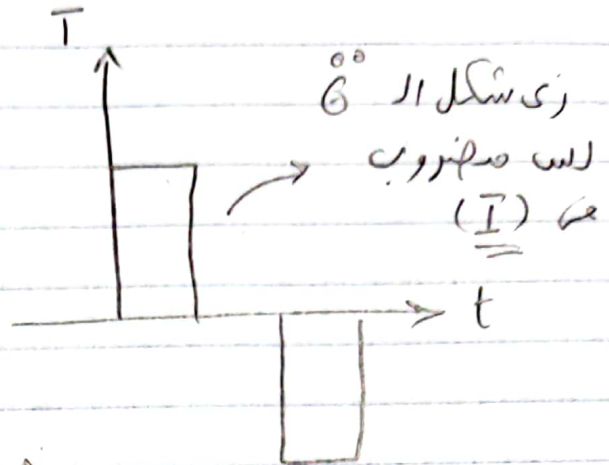 T
زى شكل الـ θ̈
بس مضروب
فى (I)
t